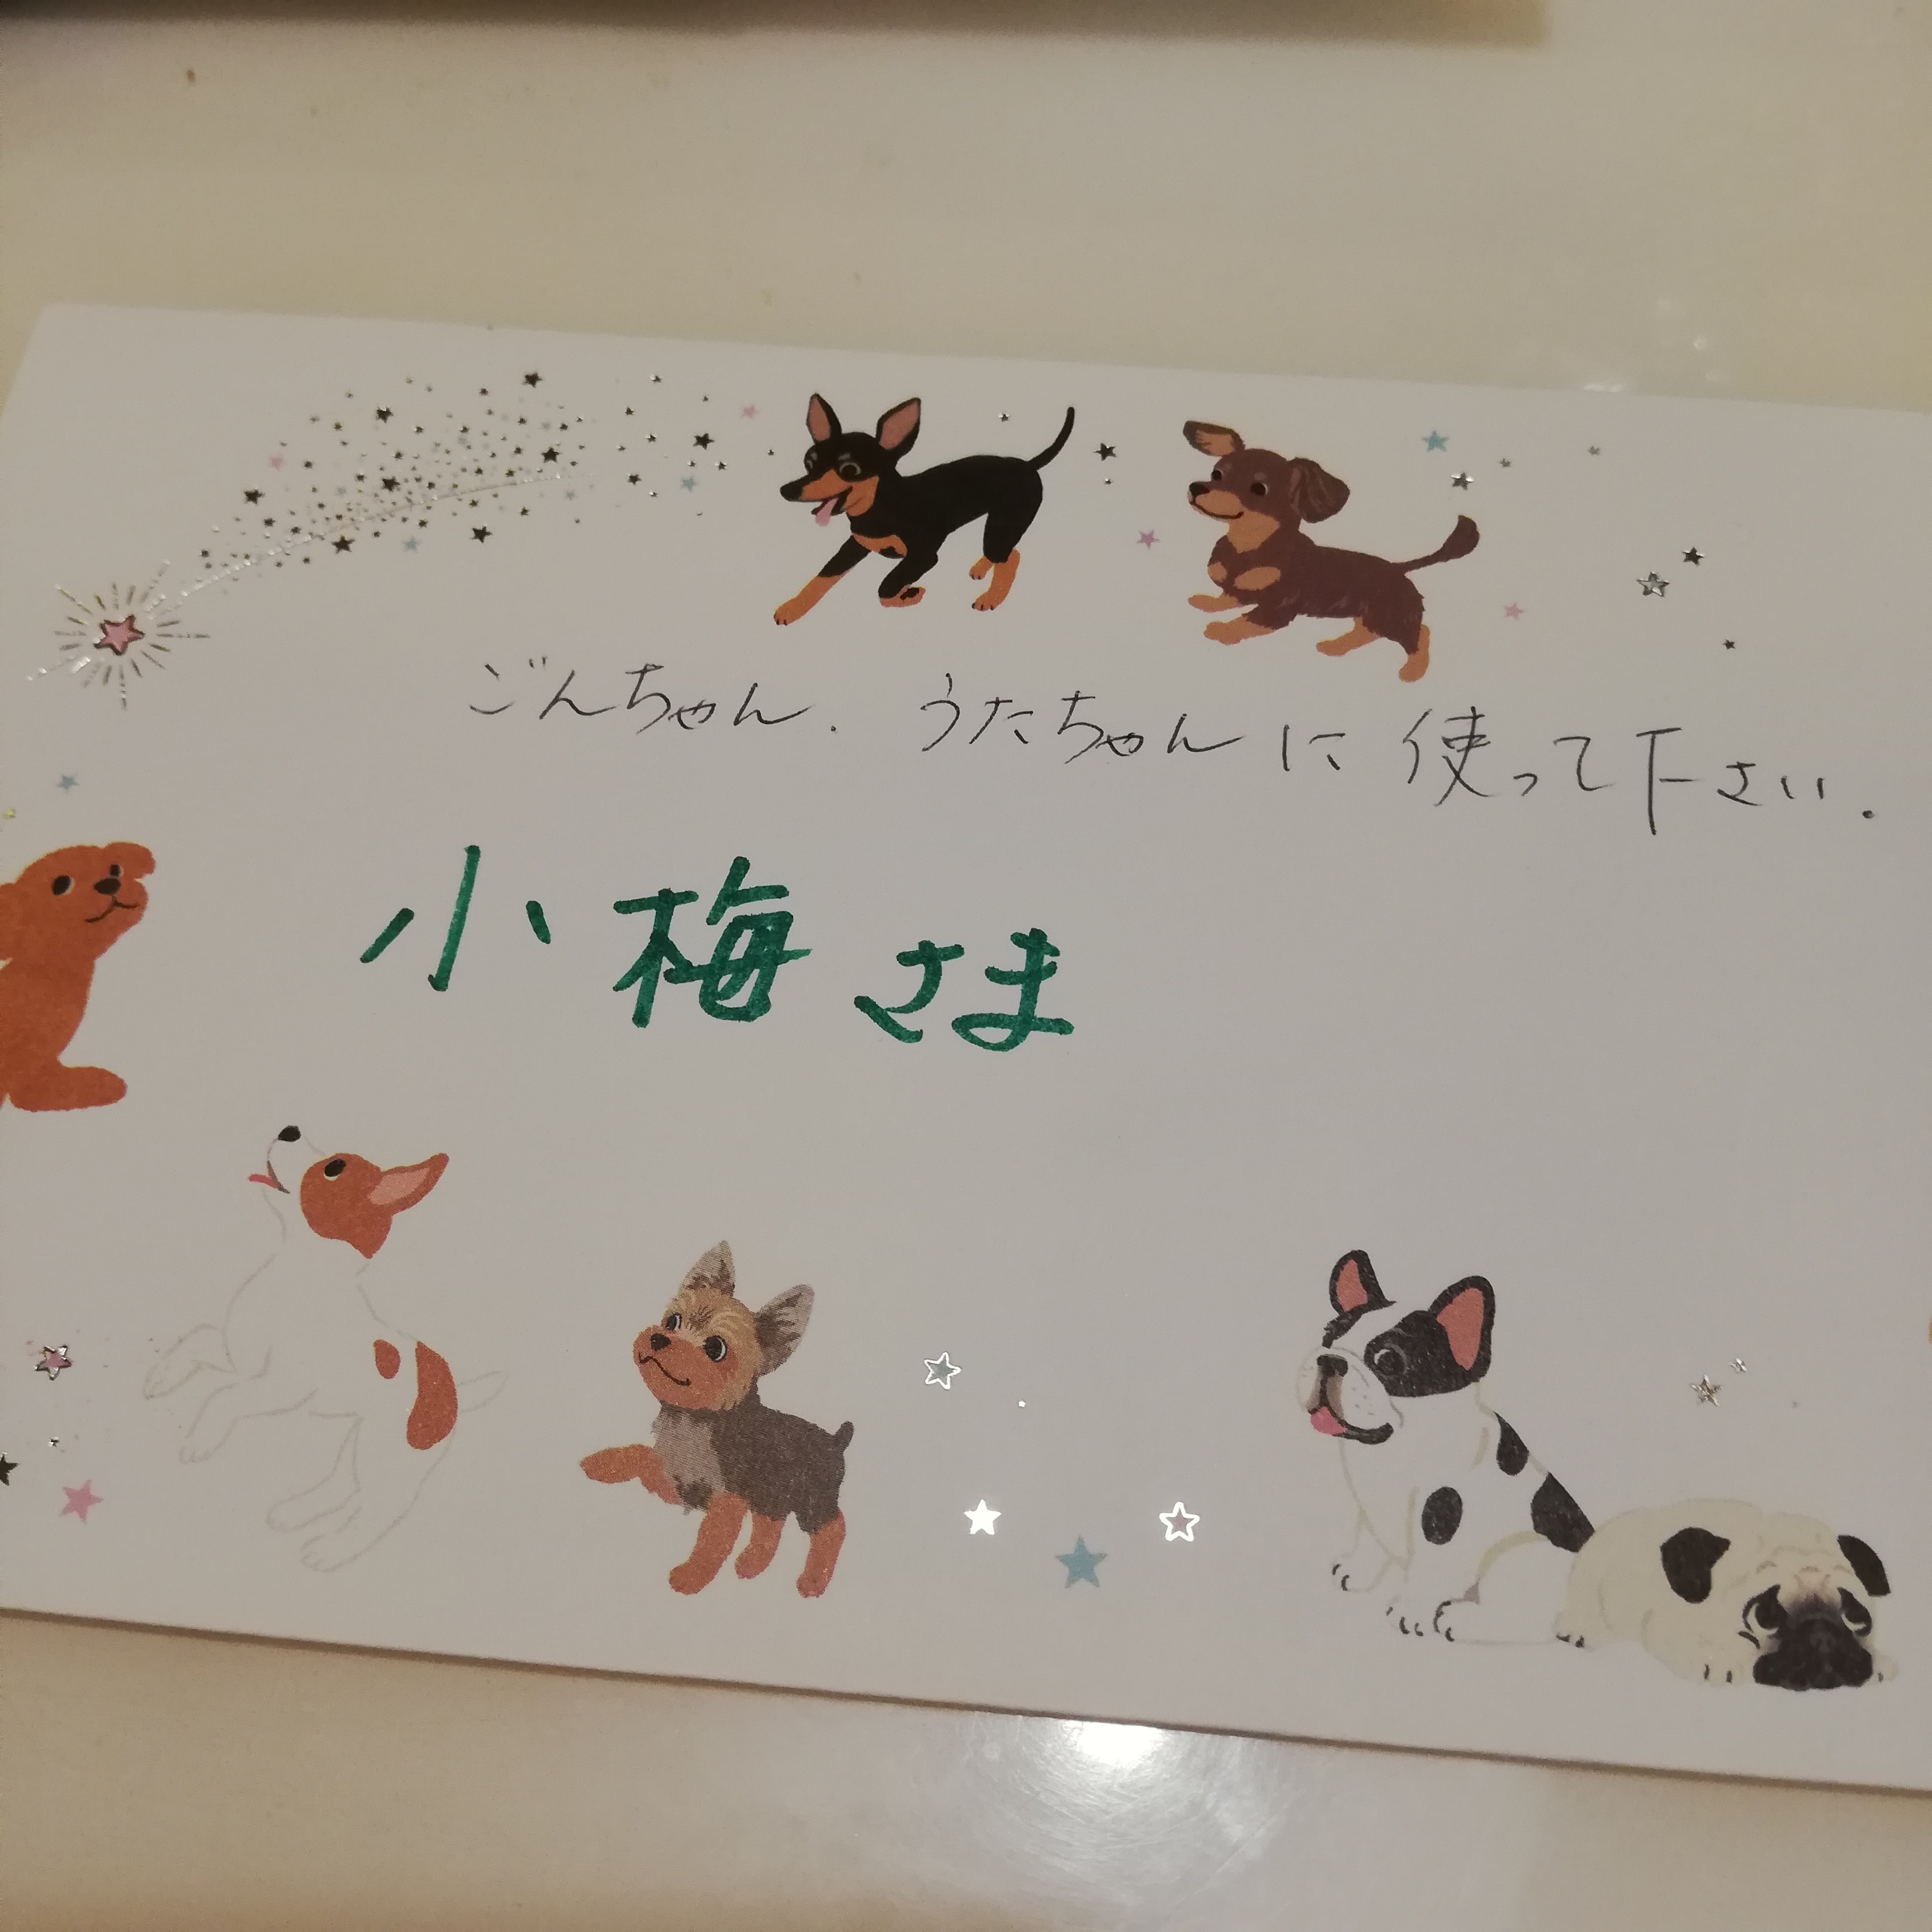 ごんちゃん. うたちゃんに使って下さい.
小梅さま